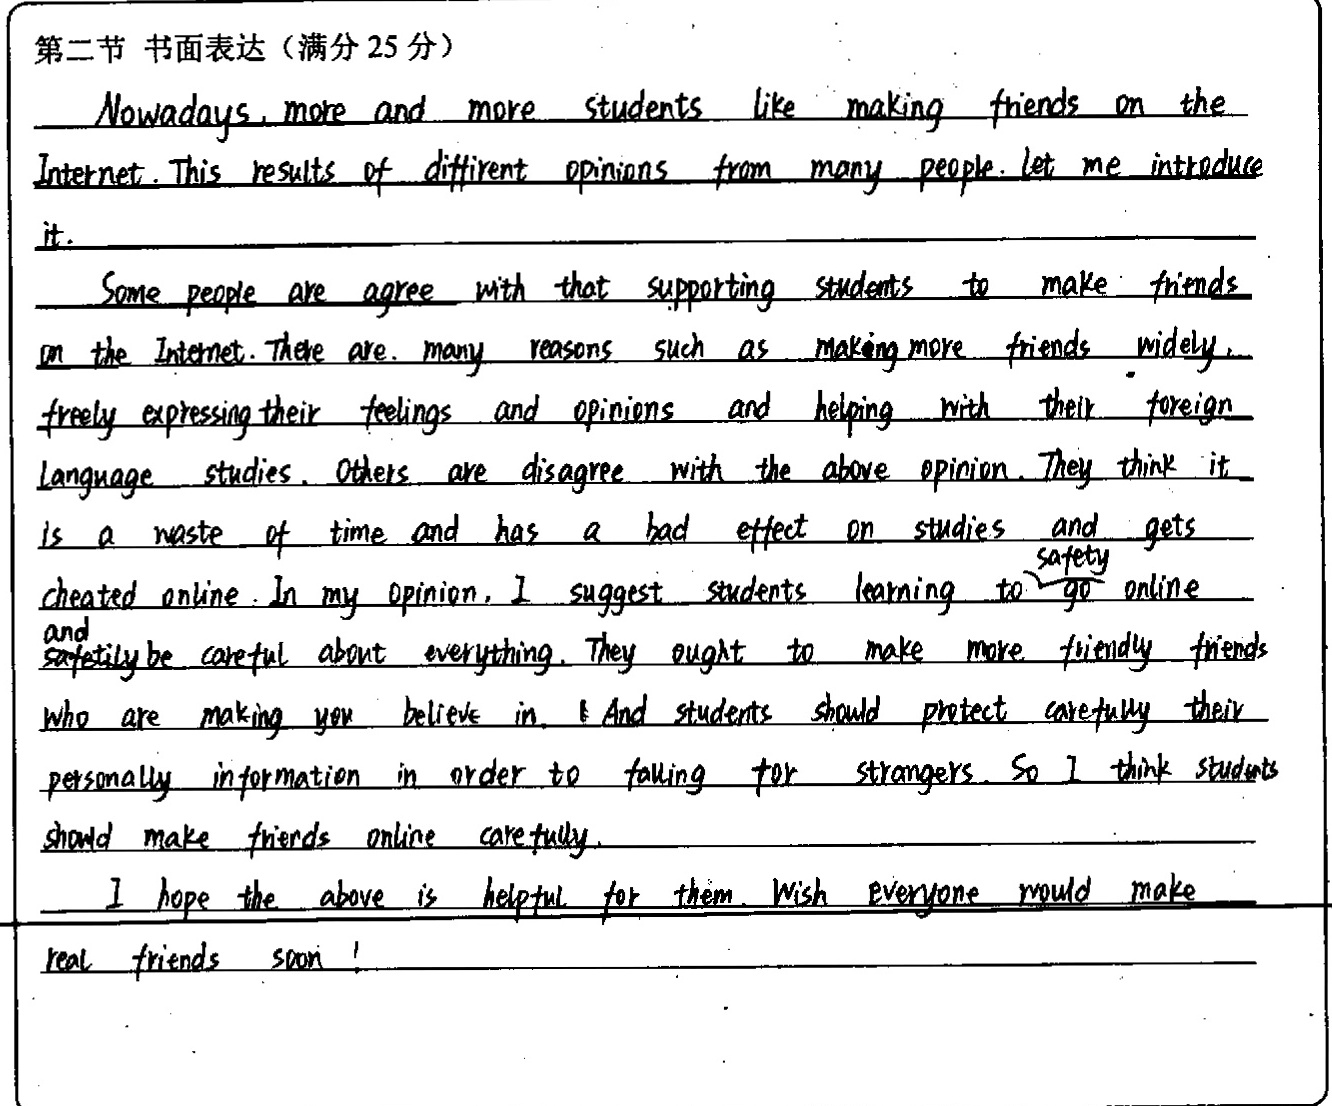 第二节 书面表达（满分 25 分）
Nowadays, more and more students like making friends on the
Internet. This results of diffirent opinions from many people. Let me introduce
it.
Some people are agree with that supporting students to make friends
on the Internet. There are. many reasons such as making more friends widely,
freely expressing their feelings and opinions and helping with their foreign
language studies. Others are disagree with the above opinion. They think it
is a waste of time and has a bad effect on studies and gets
safety
cheated online. In my opinion, I suggest students learning to go online
and
safetily be careful about everything. They ought to make more friendly friends
who are making you believe in. And students should protect carefully their
personally information in order to falling for strangers. So I think students
should make friends online carefully.
I hope the above is helpful for them. Wish everyone would make
real friends soon!